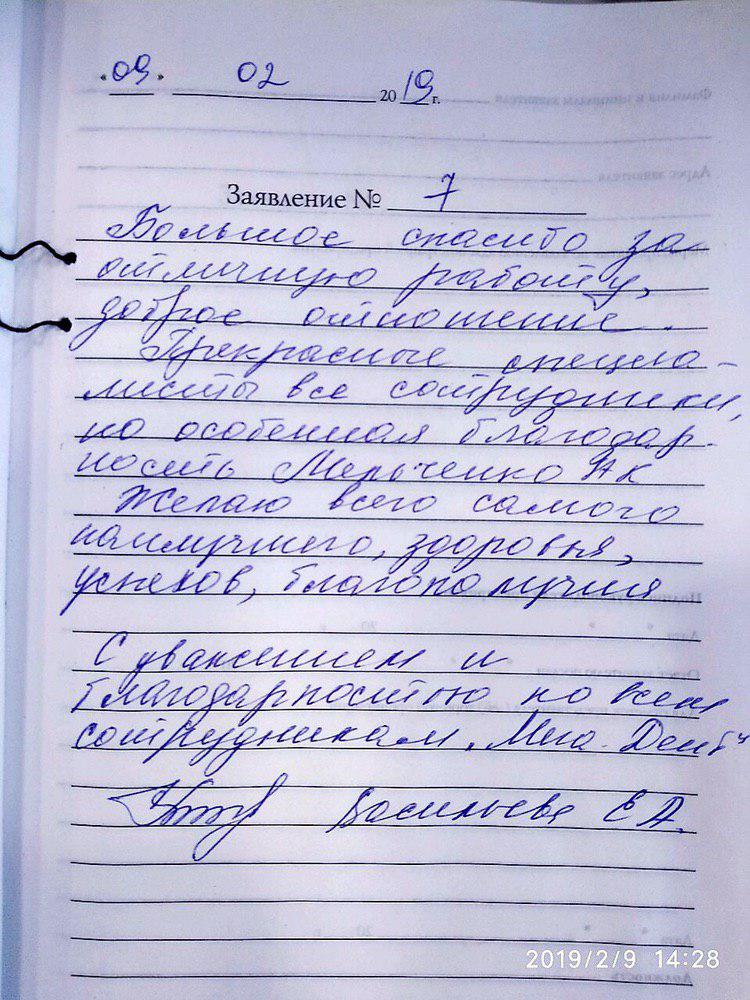 "09" 02 2019 г.
Заявление № 7
Большое спасибо за
отличную работу,
доброе отношение.
Прекрасные специа-
листы все сотрудники,
но особенная благодар-
ность Мельченко АК
Желаю всего самого
наилучшего, здоровья,
успехов, благополучия
С уважением и
благодарностью ко всем
сотрудникам "Мега-Дент"
Васильева Е А.
2019/2/9 14:28